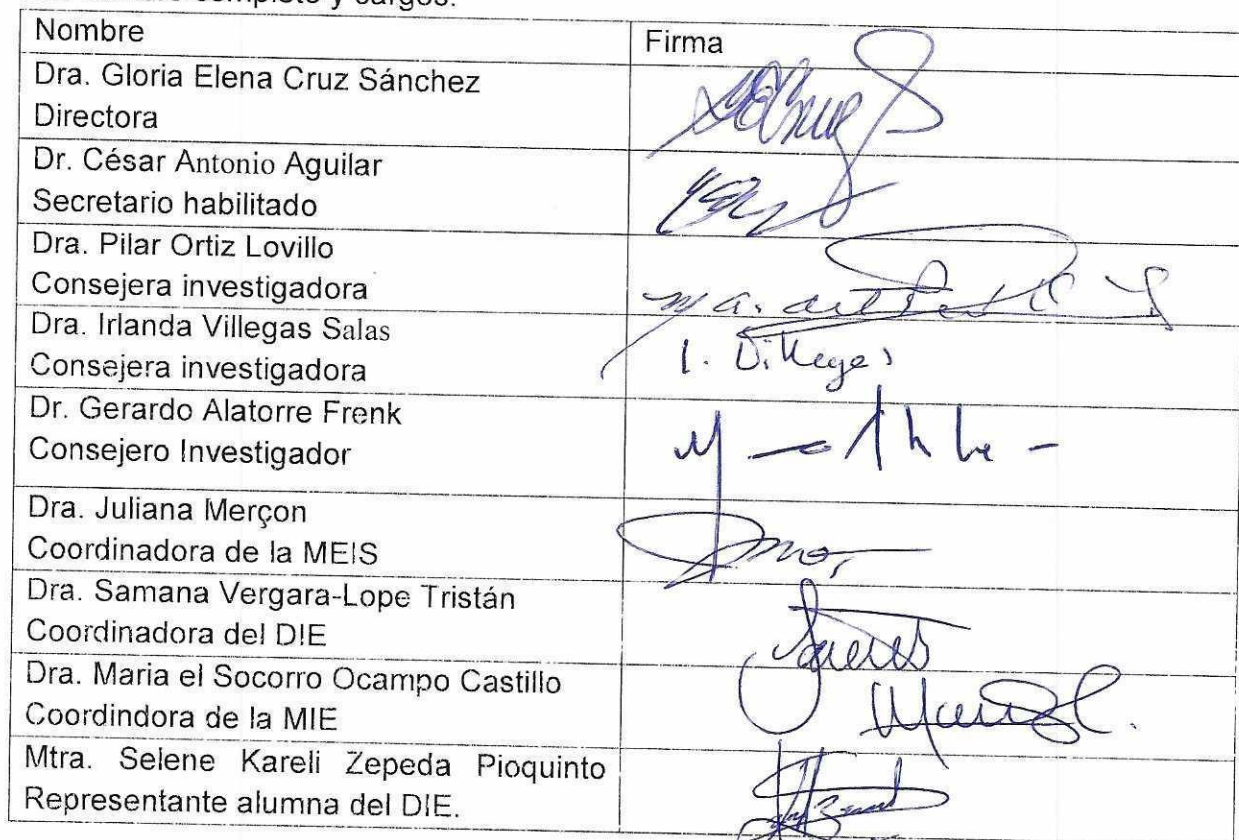 completo y cargos.
Nombre
Firma
Dra. Gloria Elena Cruz Sánchez
Directora
Dr. César Antonio Aguilar
Secretario habilitado
Dra. Pilar Ortiz Lovillo
Consejera investigadora
Dra. Irlanda Villegas Salas
Consejera investigadora
I. Villegas
Dr. Gerardo Alatorre Frenk
Consejero Investigador
Dra. Juliana Merçon
Coordinadora de la MEIS
Dra. Samana Vergara-Lope Tristán
Coordinadora del DIE
Dra. Maria el Socorro Ocampo Castillo
Coordindora de la MIE
Mtra. Selene Kareli Zepeda Pioquinto
Representante alumna del DIE.